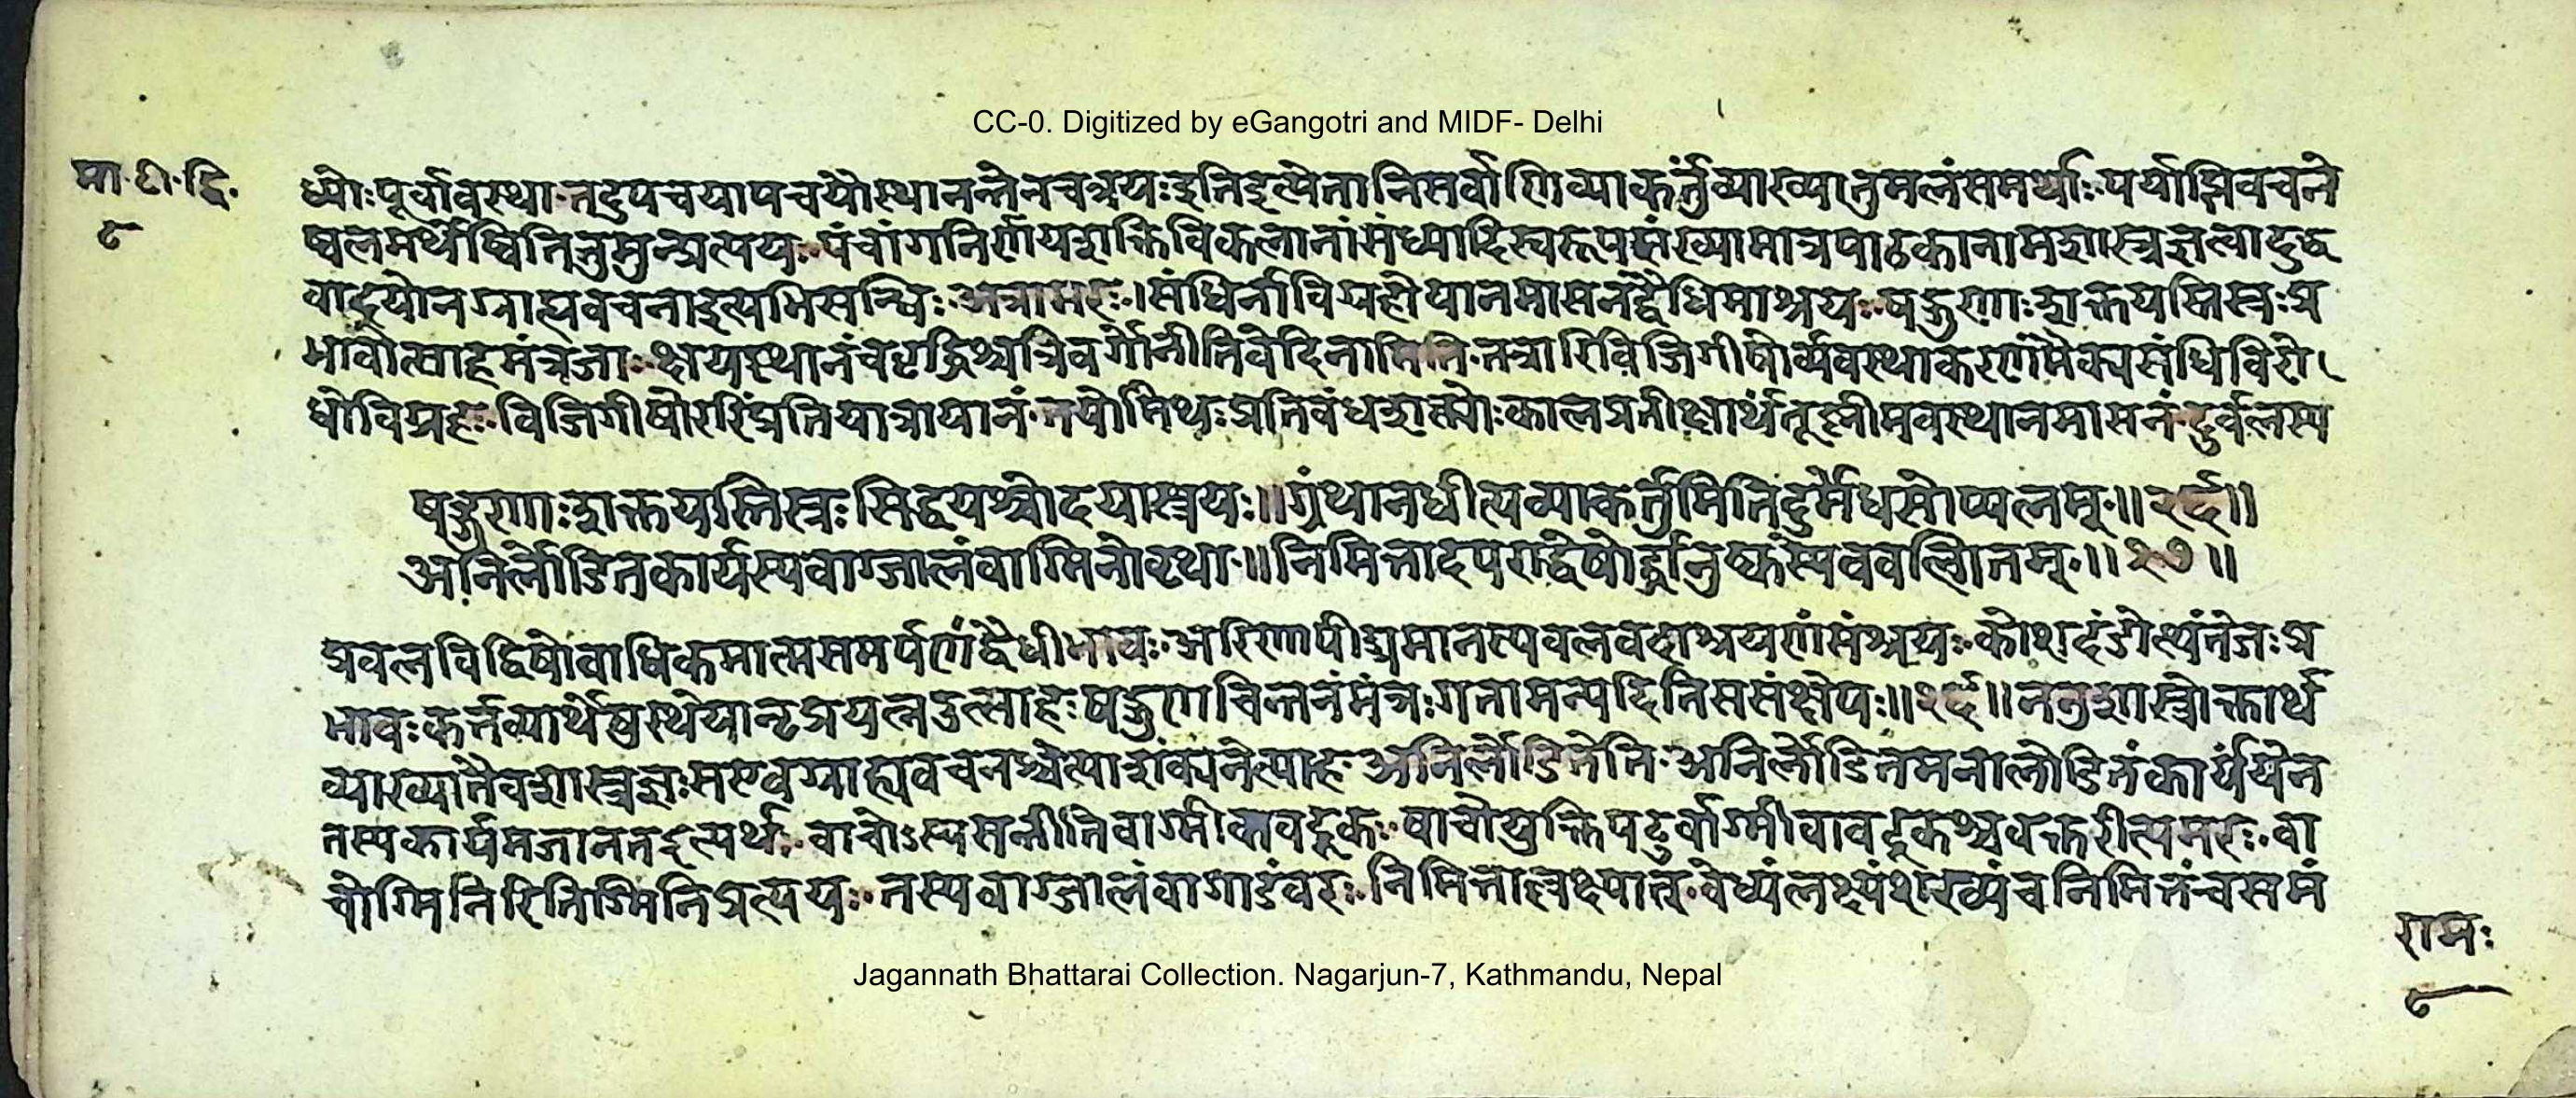 CC-0. Digitized by eGangotri and MIDF- Delhi
मा. टी. द्वि.
८
ध्योः पूर्वावस्था. तदुपचयापचयौस्थानन्तेनचत्रयः इतिइत्येतानिसर्वाणिव्याकर्तुंव्याख्यातुमलंसमर्थाः. पर्याप्तिवचने
ष्वलमर्थेष्वितितुमुन्प्रत्ययः. पंचांगनिर्णयशक्तिविकलानांसंध्यादिस्वरूपसंख्यामात्रपाठकानामशास्त्रज्ञत्वादुद्ध
वादूयोनग्राह्यवचनाइत्यभिसन्धिः. अत्रामरः. । संधिर्नाविग्रहोयानमासनंद्वैधिमाश्रयः. षड्गुणाः शक्तयस्तिस्त्रः प्र
भावोत्साहमंत्रजाः. क्षयस्थानंचवृद्धिश्चत्रिवर्गोनीतिवेदिनामिति. तत्रारिविजिगीषोर्व्यवस्थाकरणमैक्यसंधिविरो
धोविग्रहः. विजिगीषोररिंप्रतियात्रायानं. तयोर्मिथः प्रतिबंधशक्त्योः कालप्रतीक्षार्थंतूष्नीमवस्थानमासनं. दुर्वलस्य
षड्गुणाः शक्तयस्तिस्त्रः सिद्धयश्चोदयास्त्रयः ॥ ग्रंथानधीत्यव्याकर्तुमितिदुर्मेधसोप्यलम् ॥ २६ ॥
अनिर्लोडितकार्यस्यवाग्जालंवाग्मिनोवृथा. ॥ निमित्तादपराद्धेषोर्द्धानुष्कस्येववल्गितम् ॥ २७ ॥
प्रवलविद्विषोवाधिकमात्मसमर्पणंद्वैधीभावः. अरिणापीड्यमानस्यवलवदाश्रयणंसंश्रयः. कोशदंडोत्थंतेजः प्र
भावः कर्तव्यार्थेषुस्थेयान्प्रयत्नउत्साहः षड्गुणचिन्तनंमंत्रः गतामन्यदितिससंक्षेपः ॥ २६ ॥ ननुशास्त्रोक्तार्थ
व्याख्यातैवशास्त्रज्ञः सएवग्राह्यवचनश्चेत्याशंक्यनेत्याह. अनिर्लोडितेति. अनिर्लोडितमनालोडितंकार्यंयेन
तस्यकार्यमजानतइत्यर्थः. वाचोऽस्यसन्तीतिवाग्मी वावदूकः. वाचोयुक्तिपटुर्वाग्मीवावदूकश्चवक्तरीत्यमरः. वा
चोग्मिनिरितिग्मिनिप्रत्ययः. तस्यवाग्जालंवागाडंवरः. निमित्ताल्लक्ष्यात्. वेध्यंलक्ष्यंशरव्यंचनिमित्तंचसमं
रामः
८
Jagannath Bhattarai Collection. Nagarjun-7, Kathmandu, Nepal